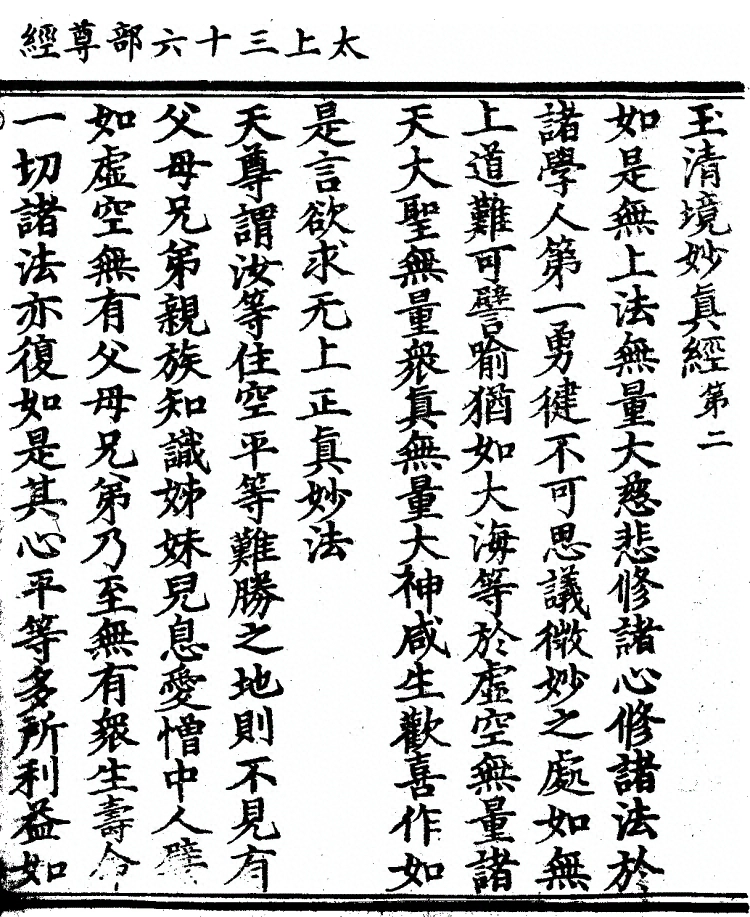 太上三十六部尊經
玉清境妙眞經第二
如是無上法無量大慈悲修諸心修諸法於
諸學人第一勇健不可思議微妙之處如無
上道難可譬喻猶如大海等於虛空無量諸
天大聖無量衆眞無量大神咸生歡喜作如
是言欲求无上正眞妙法
天尊謂汝等住空平等難勝之地則不見有
父母兄弟親族知識姊妹兒息愛憎中人譬
如虛空無有父母兄弟乃至無有衆生壽命
一切諸法亦復如是其心平等多所利益如